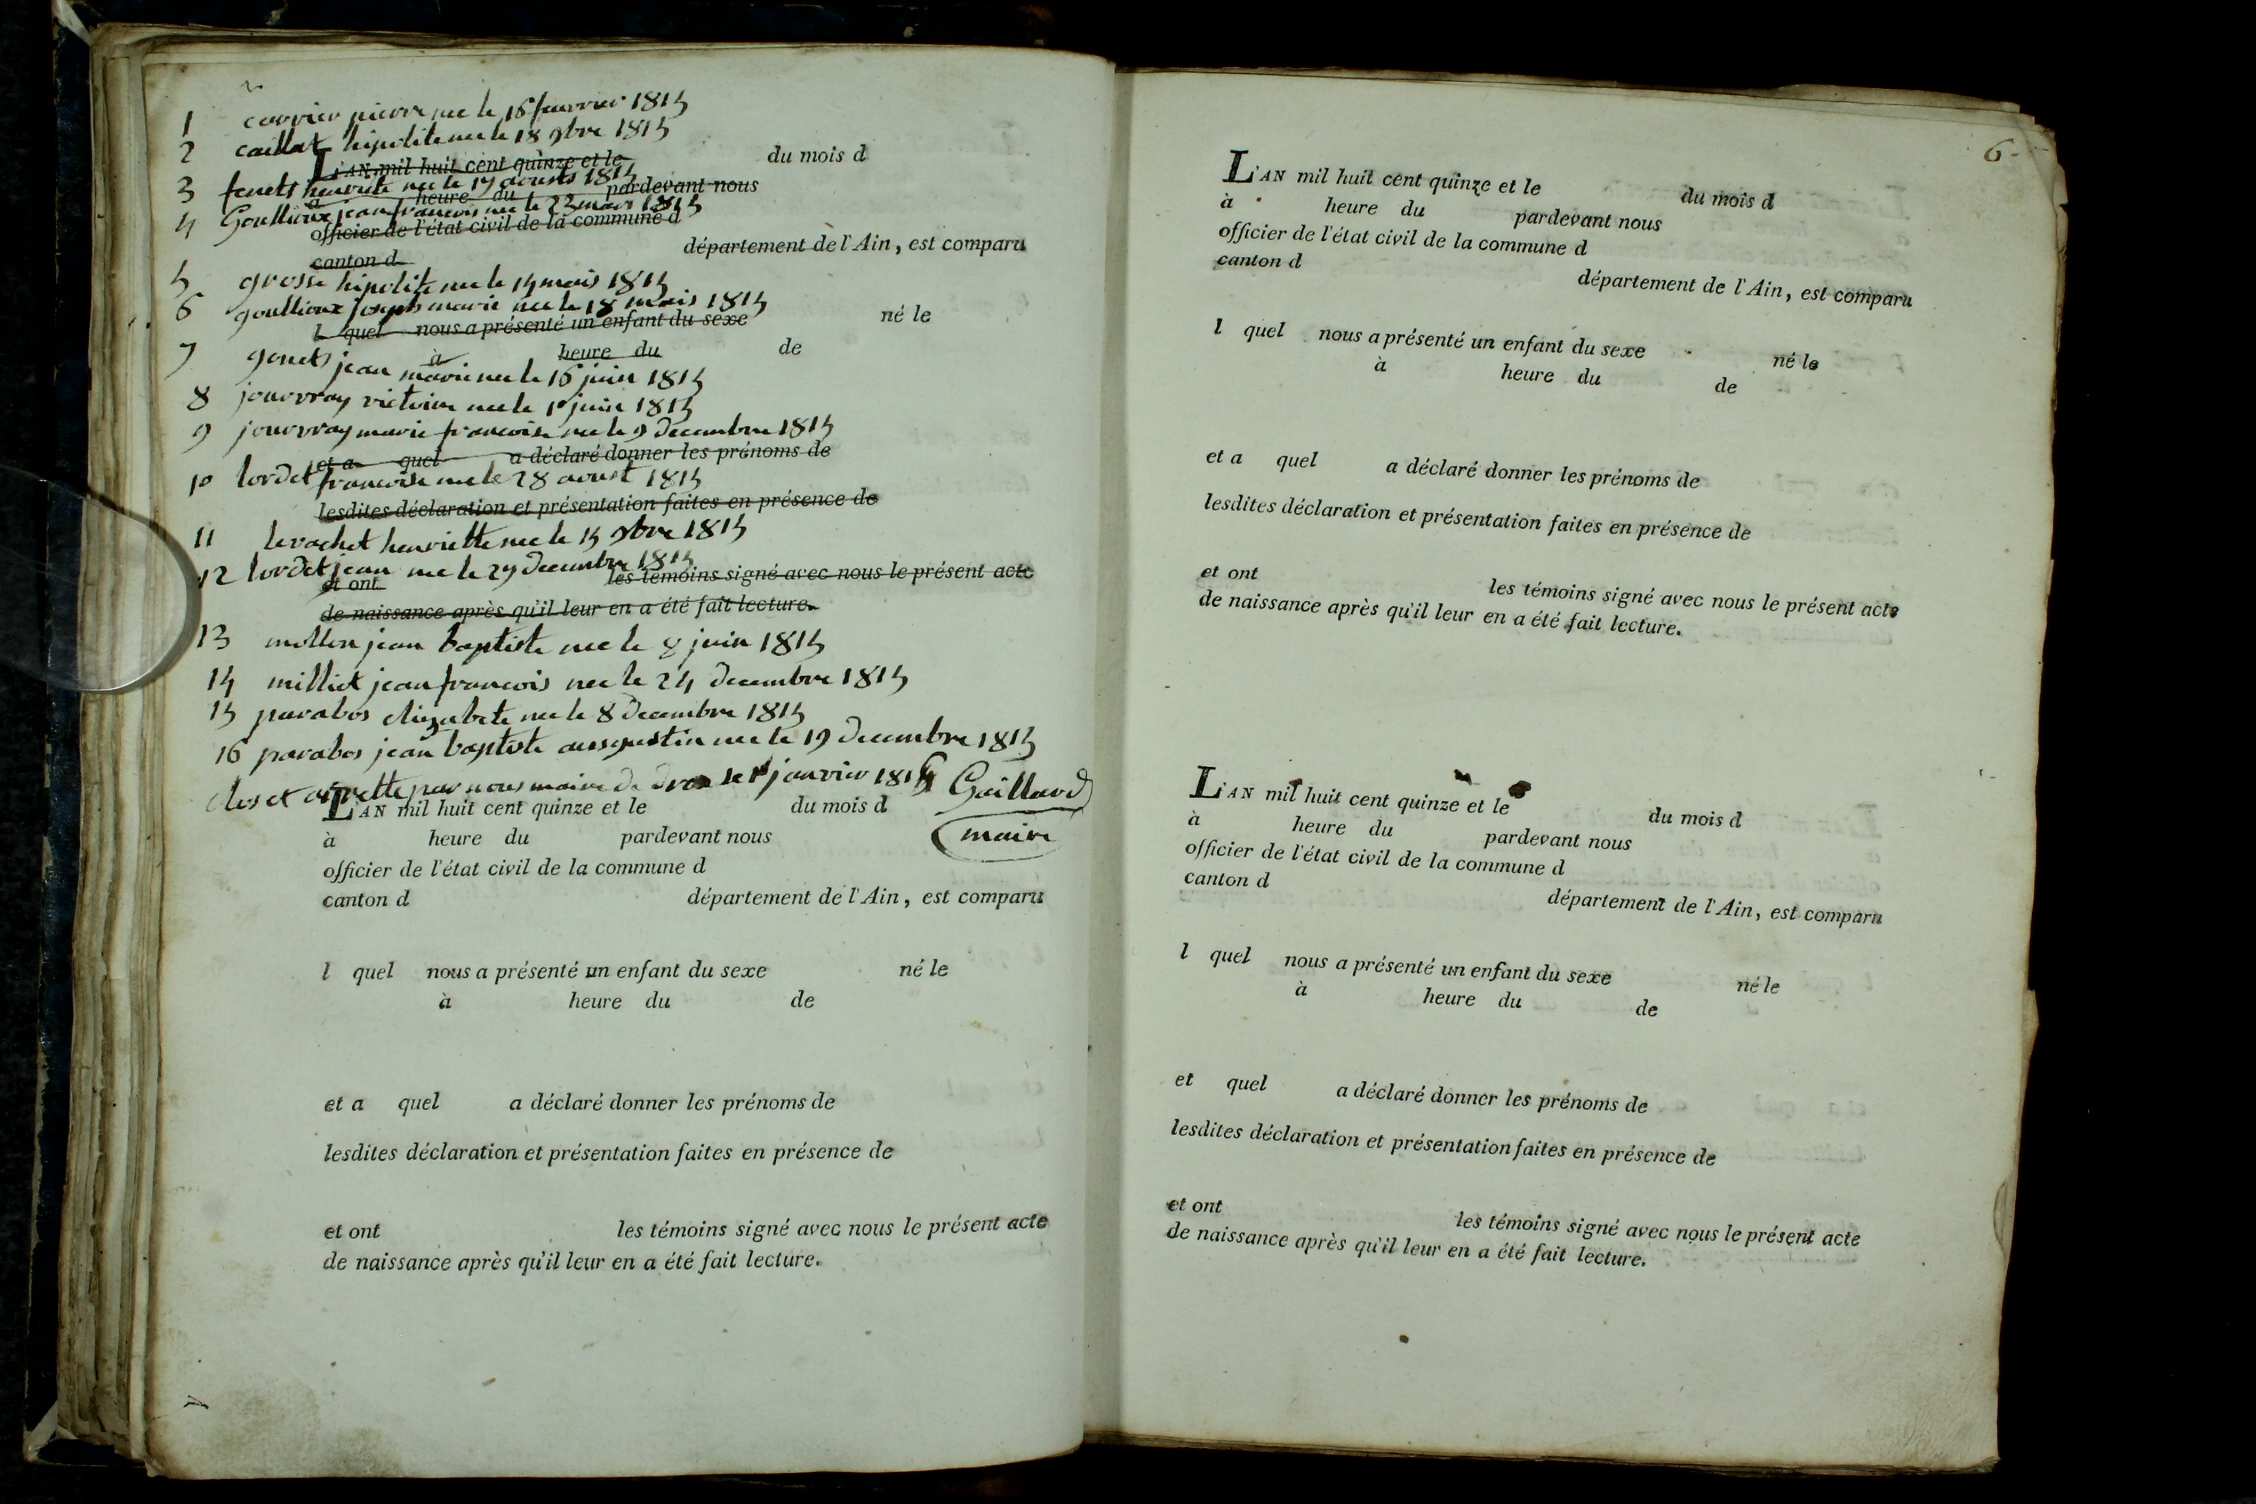 1 carrier pierre nee le 16 fevrier 1815
2 caillat hipolite nee le 18 9bre 1815
L'AN mil huit cent quinze et le du mois d
3 fenets henriete nee le 17 aousts 1815
à heure du pardevant nous
4 Goullioux jean francois nee le 22 mars 1815
officier de l'état civil de la commune d
département de l'Ain, est comparu
canton d
5 grosse hipolite nee le 14 mais 1815
6 goullioux joseph marie nee le 18 mais 1815
l quel nous a présenté un enfant du sexe né le
à heure du de
7 gonets jean marie nee le 16 juin 1815
8 jouvray victoire nee le 1er juin 1815
9 jouvray marie francoise nee le 9 decembre 1815
et a quel a déclaré donner les prénoms de
10 lordet francoise nee le 28 aoust 1815
lesdites déclaration et présentation faites en présence de
11 lerachet henriette nee le 15 9bre 1815
12 lordet jean nee le 27 decembre 1815
et ont les témoins signé avec nous le présent acte
de naissance après qu'il leur en a été fait lecture.
13 mollon jean baptiste nee le 8 juin 1815
14 milliet jean francois nee le 24 decembre 1815
15 parabos elizabete nee le 8 decembre 1815
16 parabos jean baptiste aussgustin nee le 19 decembre 1815
clos et arrette par nous maire de le 1er janvier 1816 Gaillard
maire
L'AN mil huit cent quinze et le du mois d
à heure du pardevant nous
officier de l'état civil de la commune d
canton d département de l'Ain, est comparu
l quel nous a présenté un enfant du sexe né le
à heure du de
et a quel a déclaré donner les prénoms de
lesdites déclaration et présentation faites en présence de
et ont les témoins signé avec nous le présent acte
de naissance après qu'il leur en a été fait lecture.
6
L'AN mil huit cent quinze et le du mois d
à heure du pardevant nous
officier de l'état civil de la commune d
canton d département de l'Ain, est comparu
l quel nous a présenté un enfant du sexe né le
à heure du de
et a quel a déclaré donner les prénoms de
lesdites déclaration et présentation faites en présence de
et ont les témoins signé avec nous le présent acte
de naissance après qu'il leur en a été fait lecture.
L'AN mil huit cent quinze et le du mois d
à heure du pardevant nous
officier de l'état civil de la commune d
canton d département de l'Ain, est comparu
l quel nous a présenté un enfant du sexe né le
à heure du de
et quel a déclaré donner les prénoms de
lesdites déclaration et présentation faites en présence de
et ont les témoins signé avec nous le présent acte
de naissance après qu'il leur en a été fait lecture.